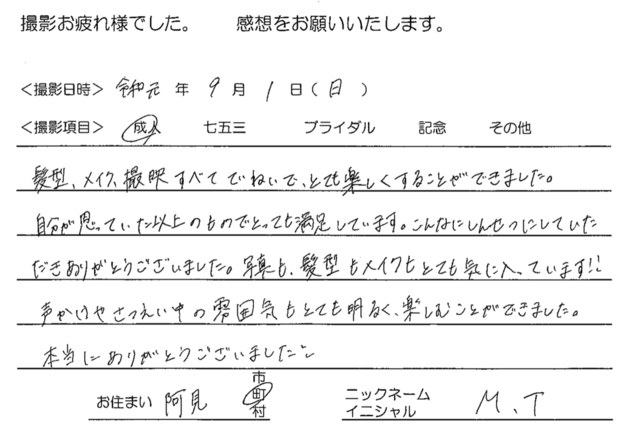 撮影お疲れ様でした。　感想をお願いいたします。
＜撮影日時＞ 令和元 年 9 月 1 日（日）
＜撮影項目＞ 成人 七五三 ブライダル 記念 その他
髪型、メイク、撮映すべてていねいで、とても楽しくすることができました。
自分が思っていた以上のものでとっても満足しています。こんなにしんせつにしていた
だきありがとうございました。写真も、髪型もメイクもとても気に入っています!!
声かけやさつえい中の雰囲気もとても明るく、楽しむことができました。
本当にありがとうございました
お住まい 阿見 市町村 ニックネーム イニシャル M.T